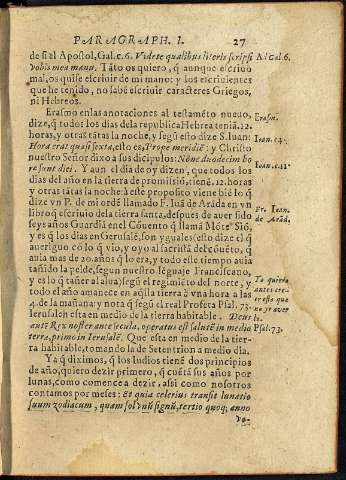 PARAGRAPH. I. 27
de si al Apostol, Gal. c. 6. Videte qualibus literis scripsi Al Gal. 6.
vobis mea manu. Tãto os quiero, q̃ aunque escriuo
mal, os quise escriuir de mi mano; y los escriuientes
que he tenido, no sabẽ escriuir caracteres Griegos,
ni Hebreos.
Erasmo en las anotaciones al testamẽto nueuo, Erasm.
dize, q̃ todos los dias de la republica Hebrea teniã. 12.
horas, y otras tãtas la noche, y segũ esto dize S. Iuan: Ioan. c. 4.
Hora erat quasi sexta, esto es, Prope meridiẽ: y Christo
nuestro Señor dixo a sus dicipulos: Nõne duodecim ho
re sunt diei. Y aun el dia de oy dizen, que todos los Ioan. c. 11.
dias del año en la tierra de promissiõ, tienẽ. 12. horas
y otras tãtas la noche: a este proposito viene biẽ lo q̃
dize vn P. de mi ordẽ llamado F. Iuã de Arãda en vn
libro q̃ escriuio de la tierra santa, despues de auer sido Fr. Ioan.
seys años Guardiã en el Cõuento q̃ llamã Mõte Siõ, de Arãd,
y es q̃ los dias en Gerusalẽ, son yguales (esto dize el q̃
aueriguo cõ lo q̃ vio, y oyo al sacristã del Cõuẽto, q̃
auia mas de 20. años q̃ lo era, y todo este tiempo auia
tañido la pelde, segun nuestro lẽguaje Franciscano,
y es lo q̃ tañer al alua) segũ el regimiẽto del norte, y Yo quiero
todo el año amanece en aq̃lla tierra à vna hora a las antes cre-
4. de la mañana: y nota q̃ segũ el real Profeta Psal. 73. er esto que
Ierusalẽ esta en medio de la tierra habitable. Deus no yr a ver
autẽ Rex noster ante secula, operatus est salutẽ in medio Psal. 73.
terræ, primo in Ierusalẽ. Que esta en medio de la tier-
ra habitable, tomando la de Setentrion a medio dia.
Ya q̃ diximos, q̃ los Iudios tienẽ dos principios
de año, quiero dezir primero, q̃ cuẽtã sus años por
lunas, como comence a dezir, assi como nosotros
contamos por meses: Et quia celerius transit lunatio
suum zodiacum, quam sol vnũ signũ, tertio quoq; anno